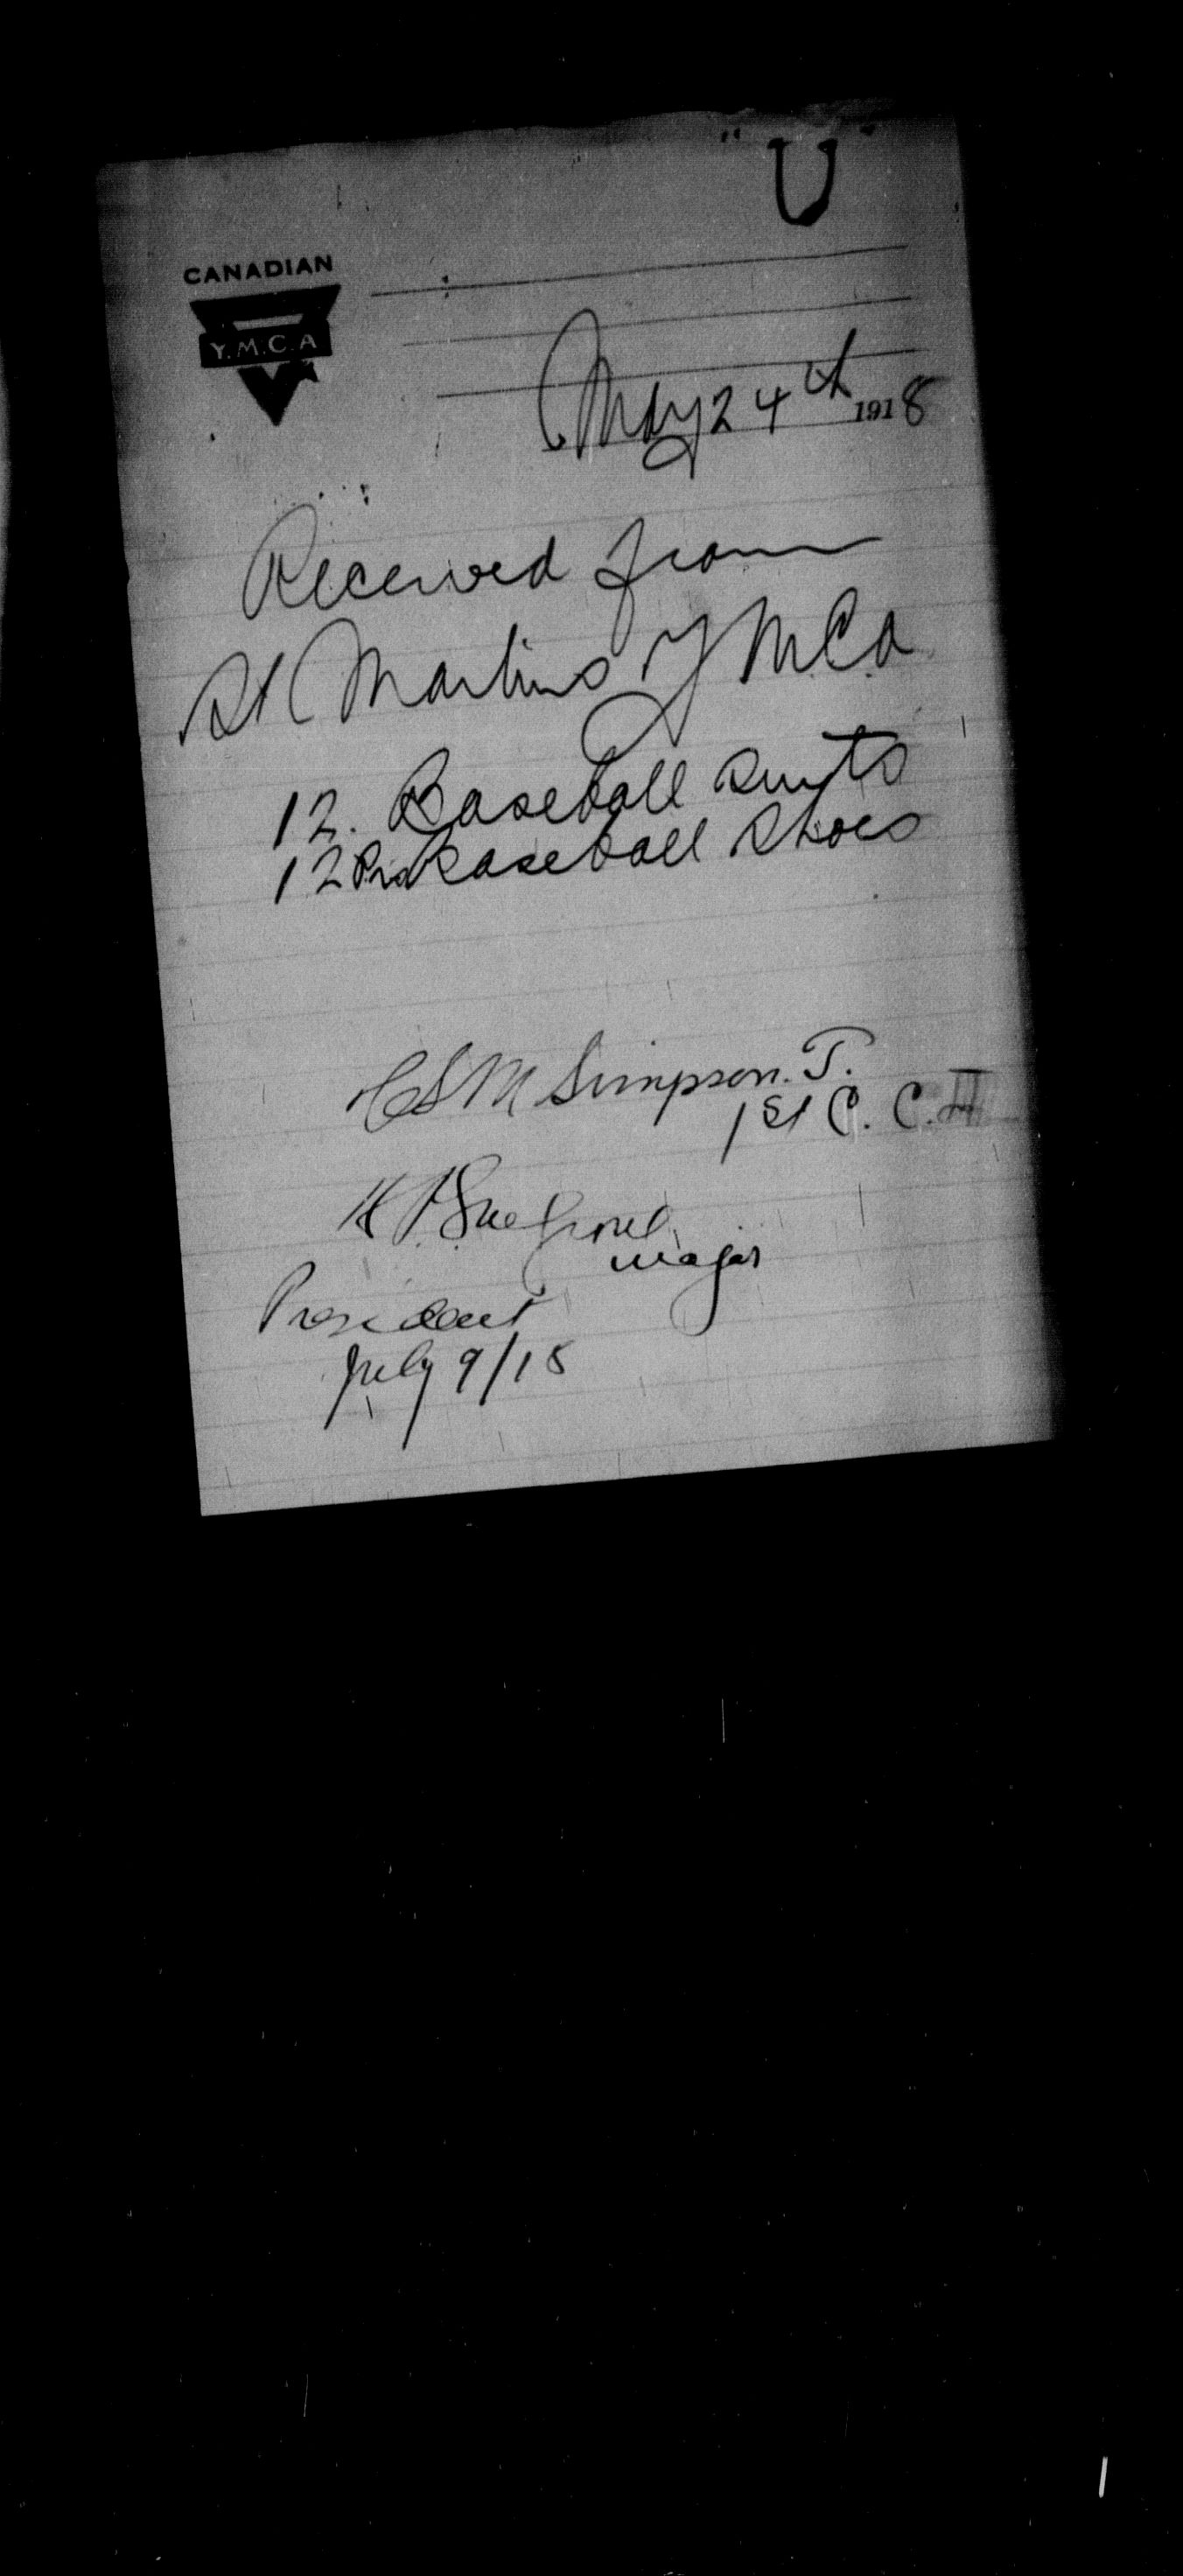 "U"
CANADIAN
Y.M.C.A
May 24th 1918
Received from
St Martins Y M C A
12. Baseball Suyts
12 Prs Baseball Shoes
CSM Simpson. T.
1st C. C. H
H
Major
President
July 9/18